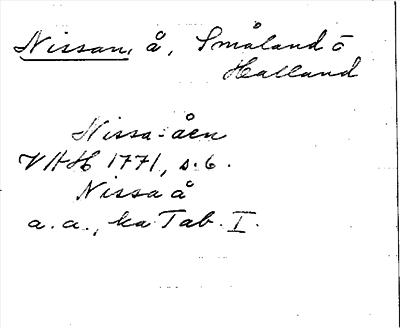 Nissan, å, Småland o
Halland
Nissa-åen
VAH 1771, s. 6.
Nissa å
a. a., ka Tab. I.